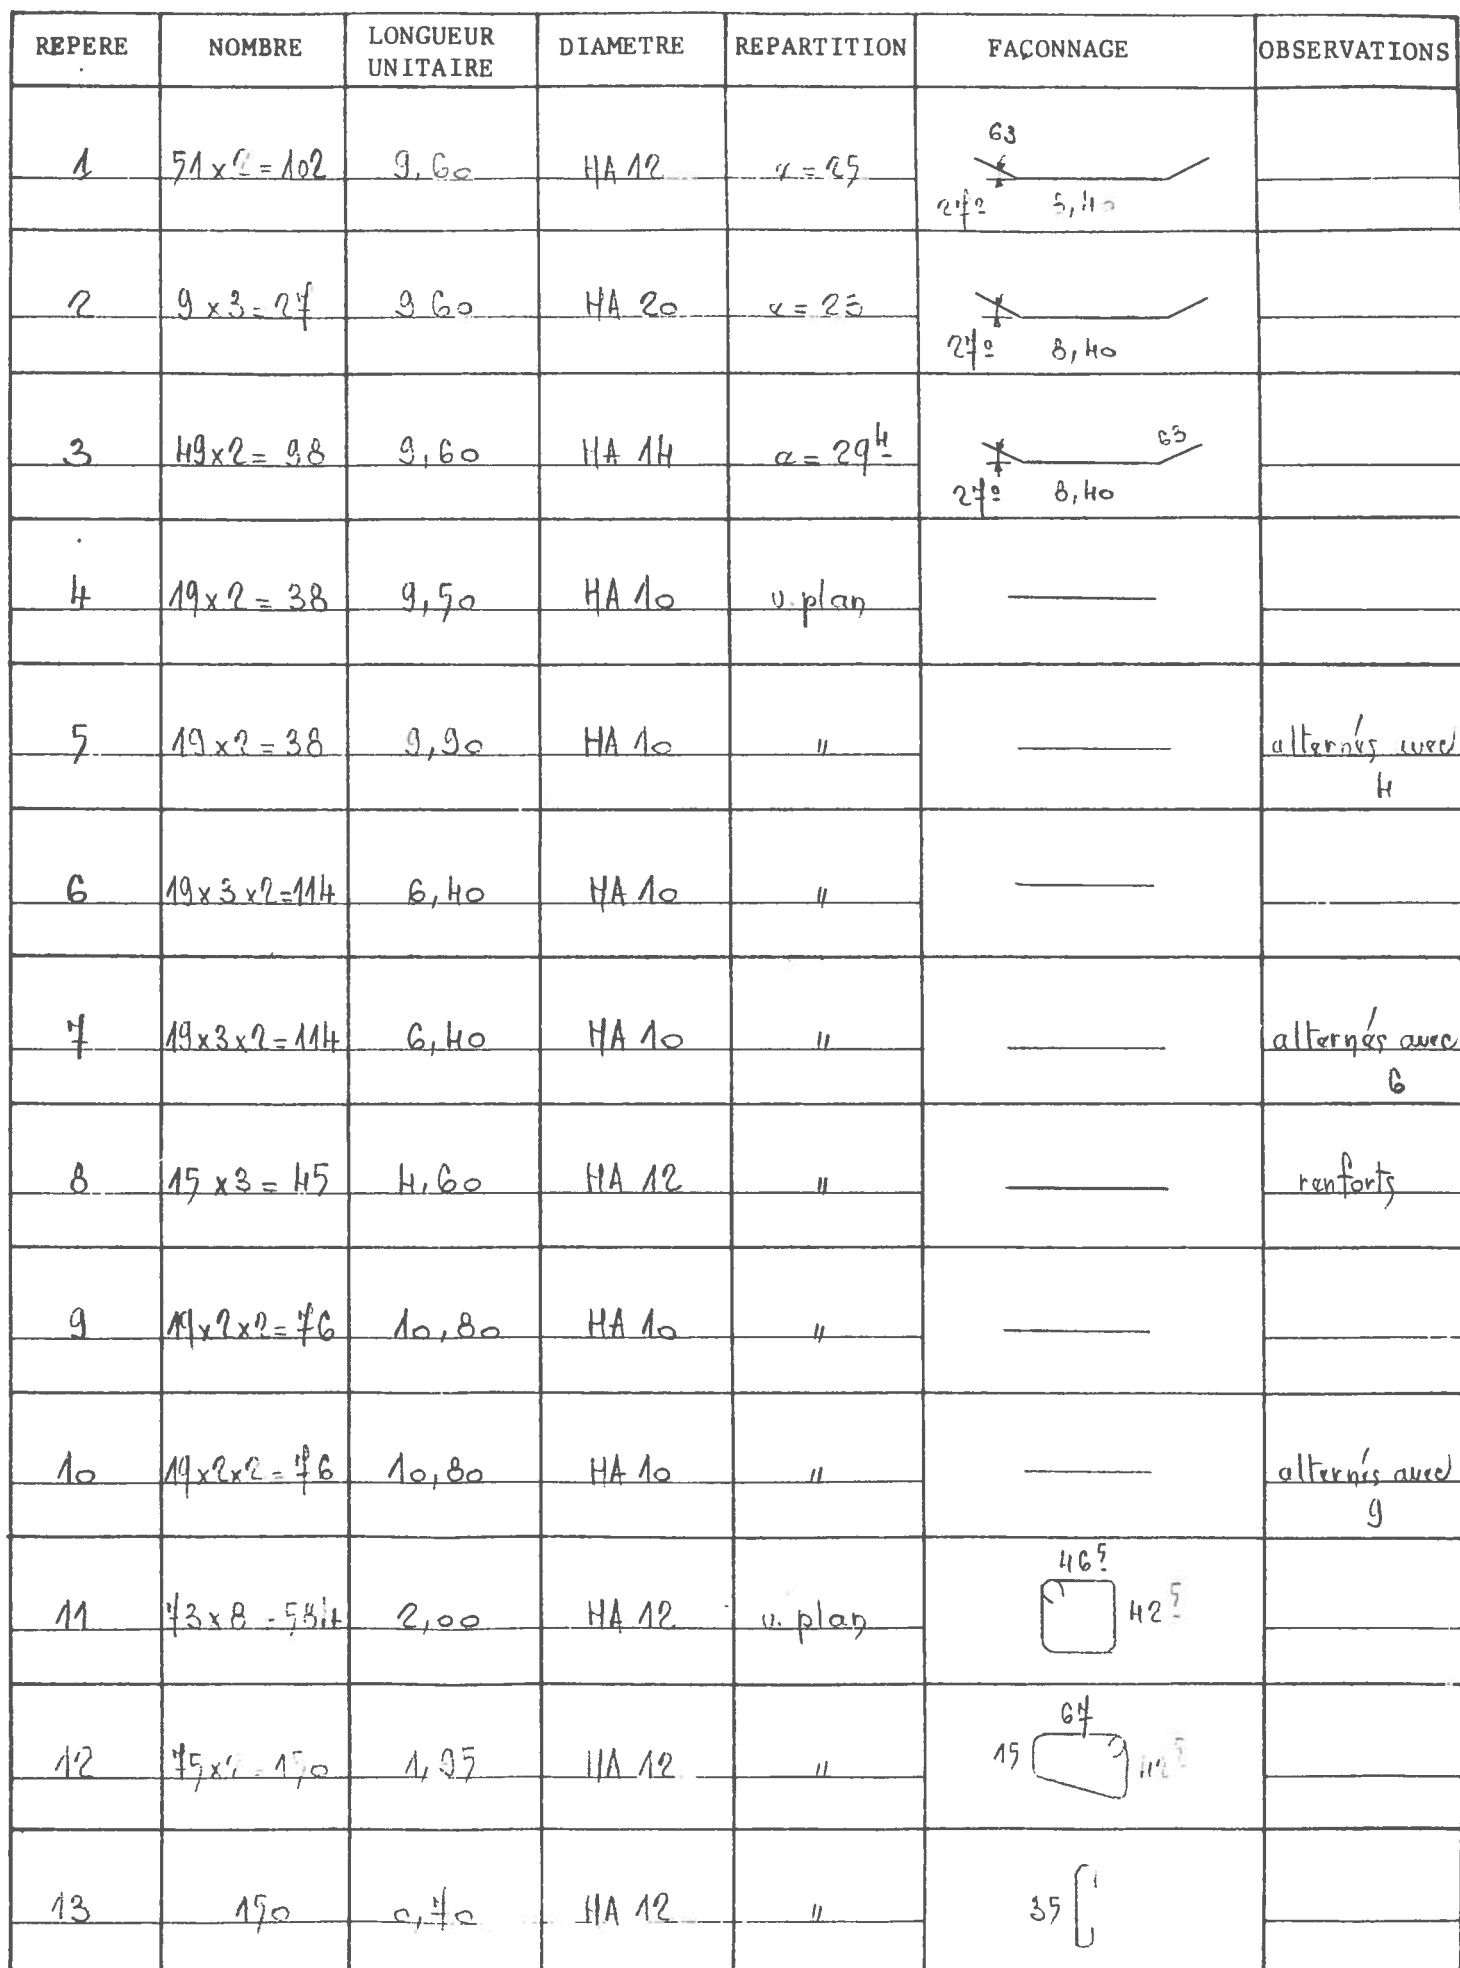 REPERE NOMBRE LONGUEUR UNITAIRE DIAMETRE REPARTITION FAÇONNAGE OBSERVATIONS
63
1 51 x 2 = 102 9,60 HA 12 α = 25
27° 8,40
2 9 x 3 = 27 9 60 HA 20 α = 25
27° 8,40
3 49 x 2 = 98 9,60 HA 14 α = 29⁴ 63
27° 8,40
4 19 x 2 = 38 9,50 HA 10 v. plan
5 19 x 2 = 38 9,90 HA 10 " alternés avec
4
6 19 x 3 x 2 = 114 6,40 HA 10 "
7 19 x 3 x 2 = 114 6,40 HA 10 " alternés avec
6
8 15 x 3 = 45 4,60 HA 12 " renforts
9 19 x 2 x 2 = 76 10,80 HA 10 "
10 19 x 2 x 2 = 76 10,80 HA 10 " alternés avec
9
46⁵
11 73 x 8 = 584 2,00 HA 12 v. plan 42⁵
67
12 75 x 2 = 150 1,95 HA 12 " 15 42⁵
13 150 0,70 HA 12 " 35